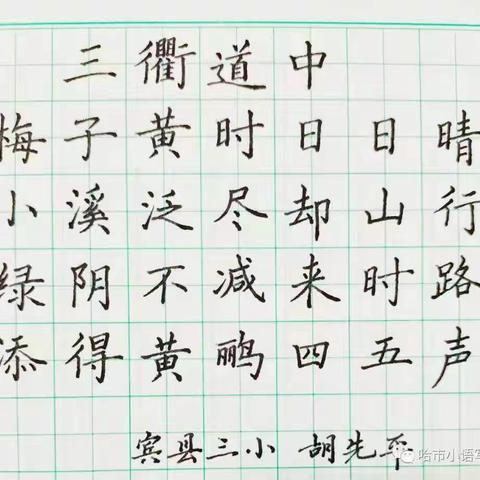 三衢道中
梅子黄时日日晴
小溪泛尽却山行
绿阴不减来时路
添得黄鹂四五声
宾县三小 胡先平
哈市小语写